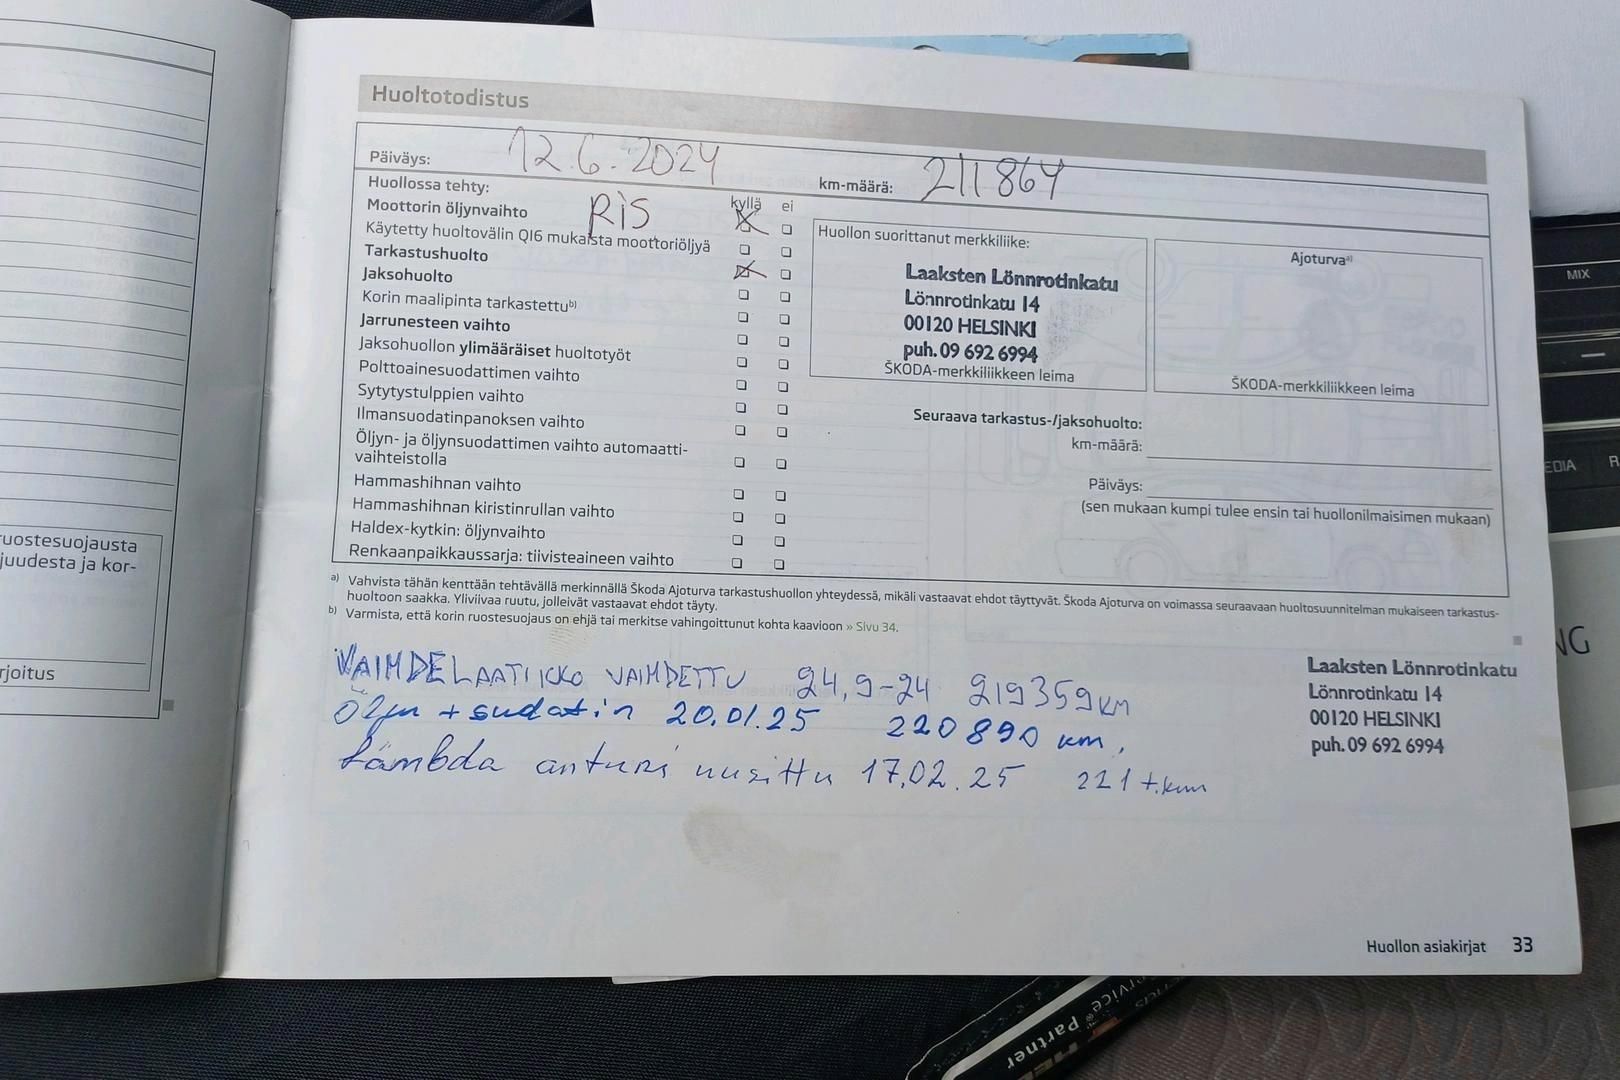 Huoltotodistus
Päiväys: 12.6.2024
km-määrä: 211864
Huollossa tehty:
kyllä ei
Moottorin öljynvaihto RIS
Käytetty huoltovälin QI6 mukaista moottoriöljyä
Tarkastushuolto
Jaksohuolto
Korin maalipinta tarkastettu b)
Jarrunesteen vaihto
Jaksohuollon ylimääräiset huoltotyöt
Polttoainesuodattimen vaihto
Sytytystulppien vaihto
Ilmansuodatinpanoksen vaihto
Öljyn- ja öljynsuodattimen vaihto automaatti-
vaihteistolla
Hammashihnan vaihto
Hammashihnan kiristinrullan vaihto
Haldex-kytkin: öljynvaihto
Renkaanpaikkaussarja: tiivisteaineen vaihto
Huollon suorittanut merkkiliike:
Laaksten Lönnrotinkatu
Lönnrotinkatu 14
00120 HELSINKI
puh. 09 692 6994
ŠKODA-merkkiliikkeen leima
Ajoturva a)
ŠKODA-merkkiliikkeen leima
Seuraava tarkastus-/jaksohuolto:
km-määrä:
Päiväys:
(sen mukaan kumpi tulee ensin tai huollonilmaisimen mukaan)
a) Vahvista tähän kenttään tehtävällä merkinnällä Škoda Ajoturva tarkastushuollon yhteydessä, mikäli vastaavat ehdot täyttyvät. Škoda Ajoturva on voimassa seuraavaan huoltosuunnitelman mukaiseen tarkastus-
huoltoon saakka. Yliviivaa ruutu, jolleivät vastaavat ehdot täyty.
b) Varmista, että korin ruostesuojaus on ehjä tai merkitse vahingoittunut kohta kaavioon » Sivu 34.
VAIHDELAATIKKO VAIHDETTU 24,9-24 219359 KM
Öljyn + sudatin 20.01.25 220890 km,
Lämbda anturi uusittu 17.02.25 221 t.km
Laaksten Lönnrotinkatu
Lönnrotinkatu 14
00120 HELSINKI
puh. 09 692 6994
Huollon asiakirjat 33
ruostesuojausta
juudesta ja kor-
rjoitus
MIX
EDIA
NG
ervice
Partner